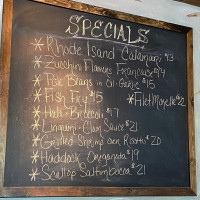 SPECIALS
* Rhode Island Calamari $13
* Zucchini Flowers Francaise $14
* Pole Beans in Oil-Garlic $15
* Fish Fry $15
* Filet Mignette $22
* Broccoli $17
* Linguini - Clam Sauce $21
* Grilled Shrimp over Risotto $20
* Haddock Oreganata $19
* Scallop Saltimbocca $21